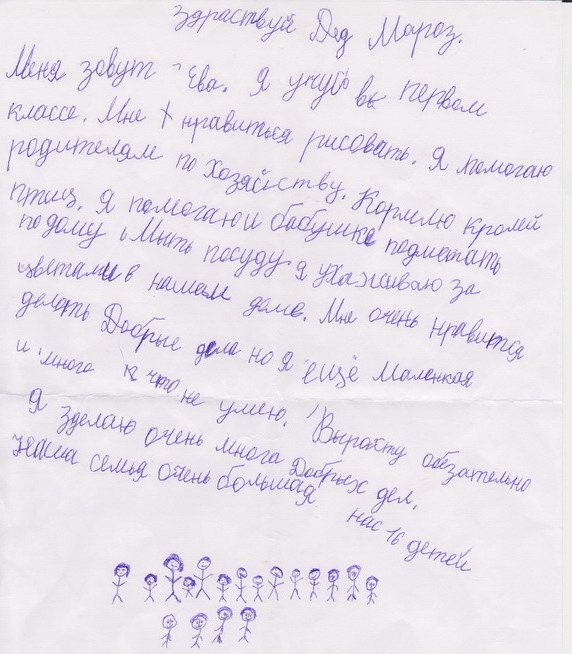 Здраствуй Дед Мароз.
Меня зовут Ева. Я учусь в первом
классе. Мне нравиться рисовать. Я помогаю
родителям по хозяйству. Кормлю кролей
птиц. Я помогаю и бабушке подметать
по дому, Мыть посуду я ухаживаю за
цветами в нашем доме. Мне очень нравится
делать Добрые дела но я ещё Маленкая
и много что не умею. Вырасту обезательно
Я зделаю очень многа Добрых дел.
Наша семья очень большая нас 16 детей